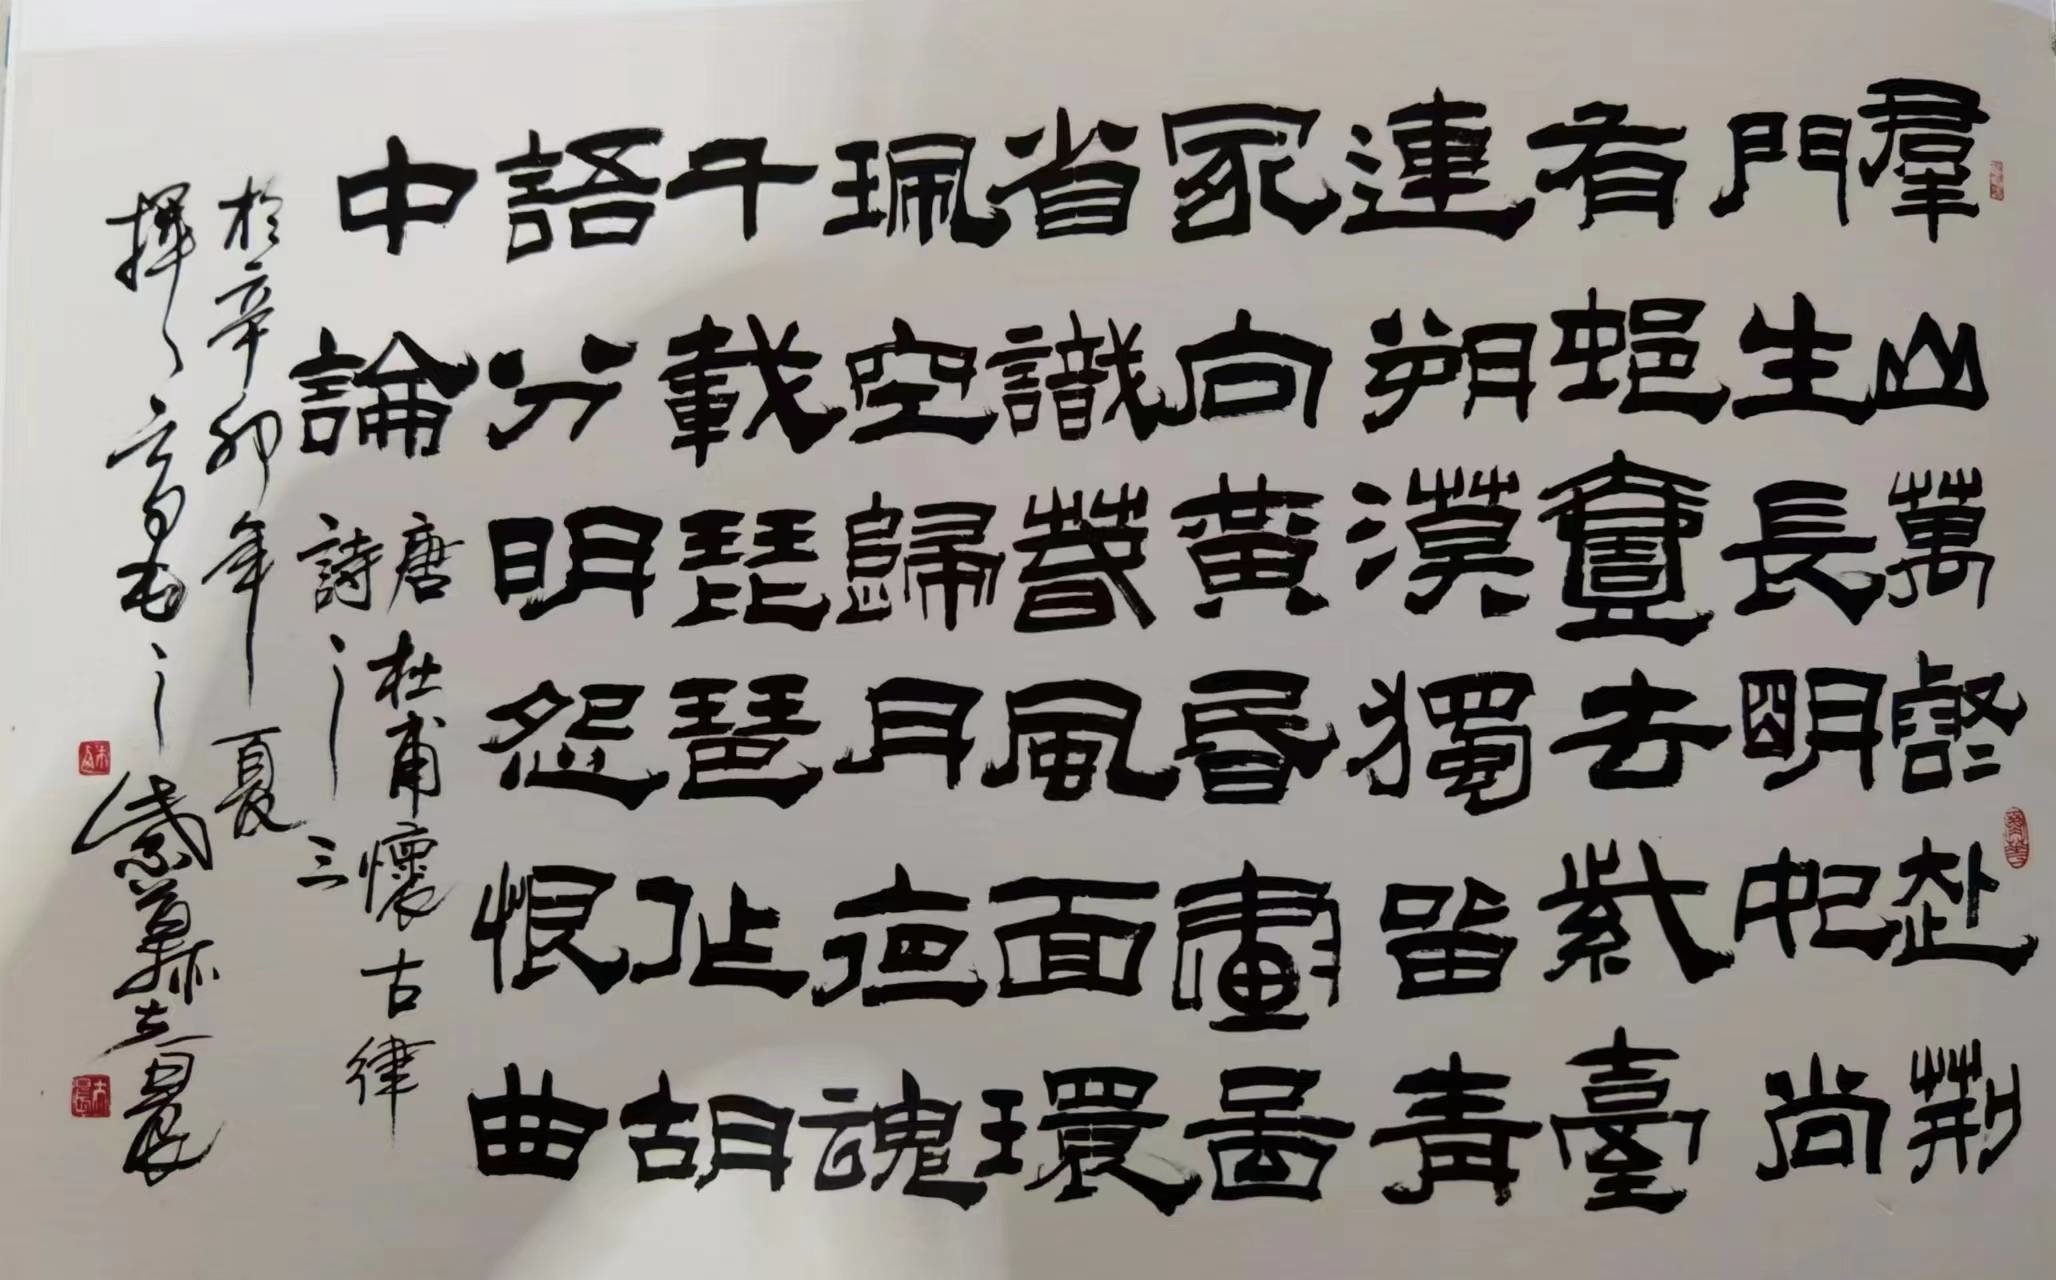 羣山萬壑赴荆
門生長明妃尚
有邨一去紫臺
連朔漠獨留青
冢向黄昏畫圖
省識春風面環
珮空歸月夜魂
千載琵琶作胡
語分明怨恨曲
中論
唐杜甫懷古律
詩之三
於辛卯年夏